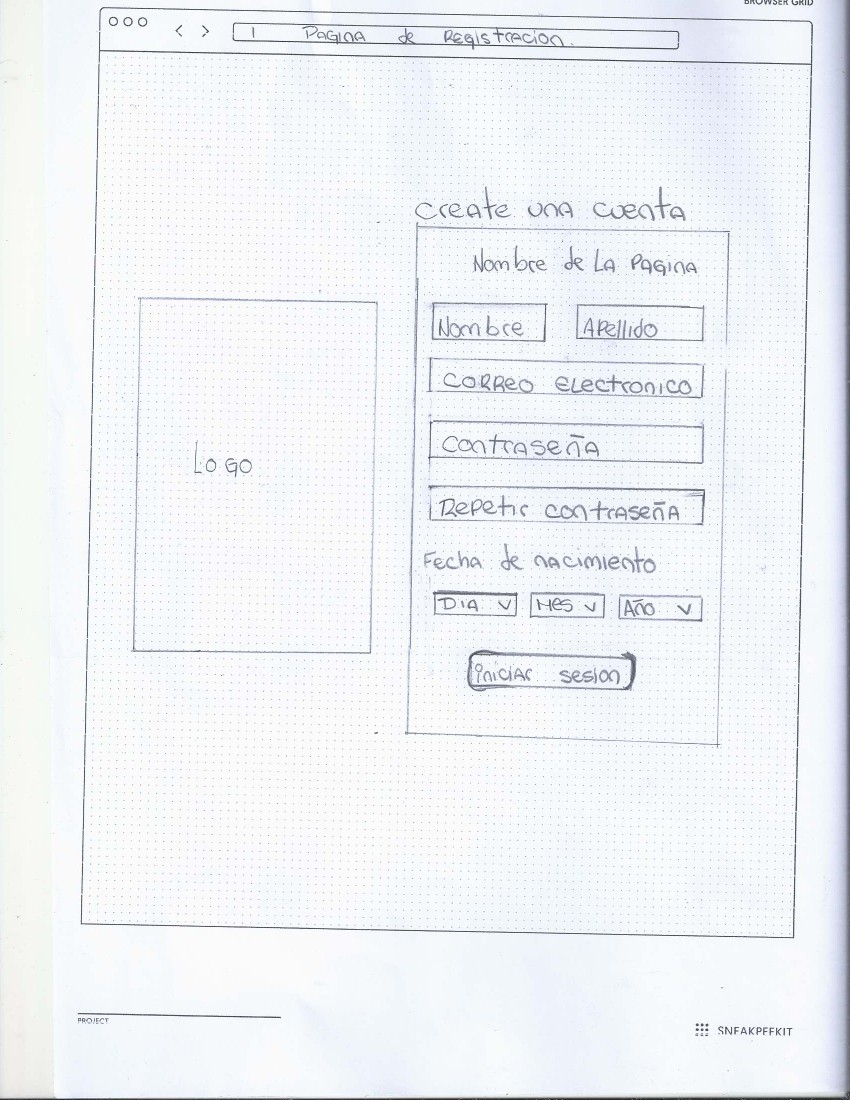 BROWSER GRID
1 PAGINA de REGISTRACION.
Create una cuenta
Nombre de LA PAGINA
Nombre Apellido
CORREO ELECTRONICO
CONTRASEÑA
Repetir contraseña
Fecha de nacimiento
DIA MES AÑO
iniciar sesion
LOGO
PROJECT
SNEAKPEEKIT